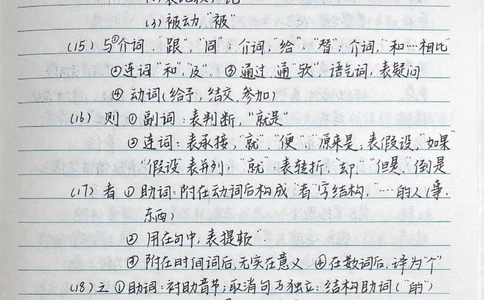 (3) 被动,“被”
(15) 与①介词.“跟”,“同”;介词,“给”.“替”;介词,“和…相比”
②连词“和”,“及”, ③通过“通”“欤”,语气词,表疑问
④ 动词(给予,结交,参加)
(16) 则 ① 副词:表判断,“就是”
②连词:表承接,“就”,“便”,“原来是;表假设,“如果”
“假设”表并列,“就”;表转折,“却”,“但是”,“倒是
(17) 者 ① 助词.附在动词后构成“者”字结构,“…的人(事.
东西)
② 用在句中,表提顿”.
③ 附在时间词后,无实在意义 ④在数词后.译为“个”
(18) 之 ①助词:衬助音节;取消句子独立;结构助词(“的”)